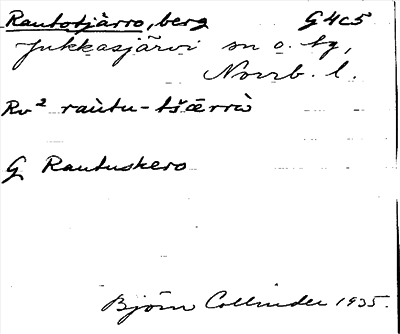 Rautotjårro, berg G4c5
Jukkasjärvi sn o. tg,
Norrb. l.
Rv² raùtu-tšǣrrà
G Rautuskero
Björn Collinder 1935.